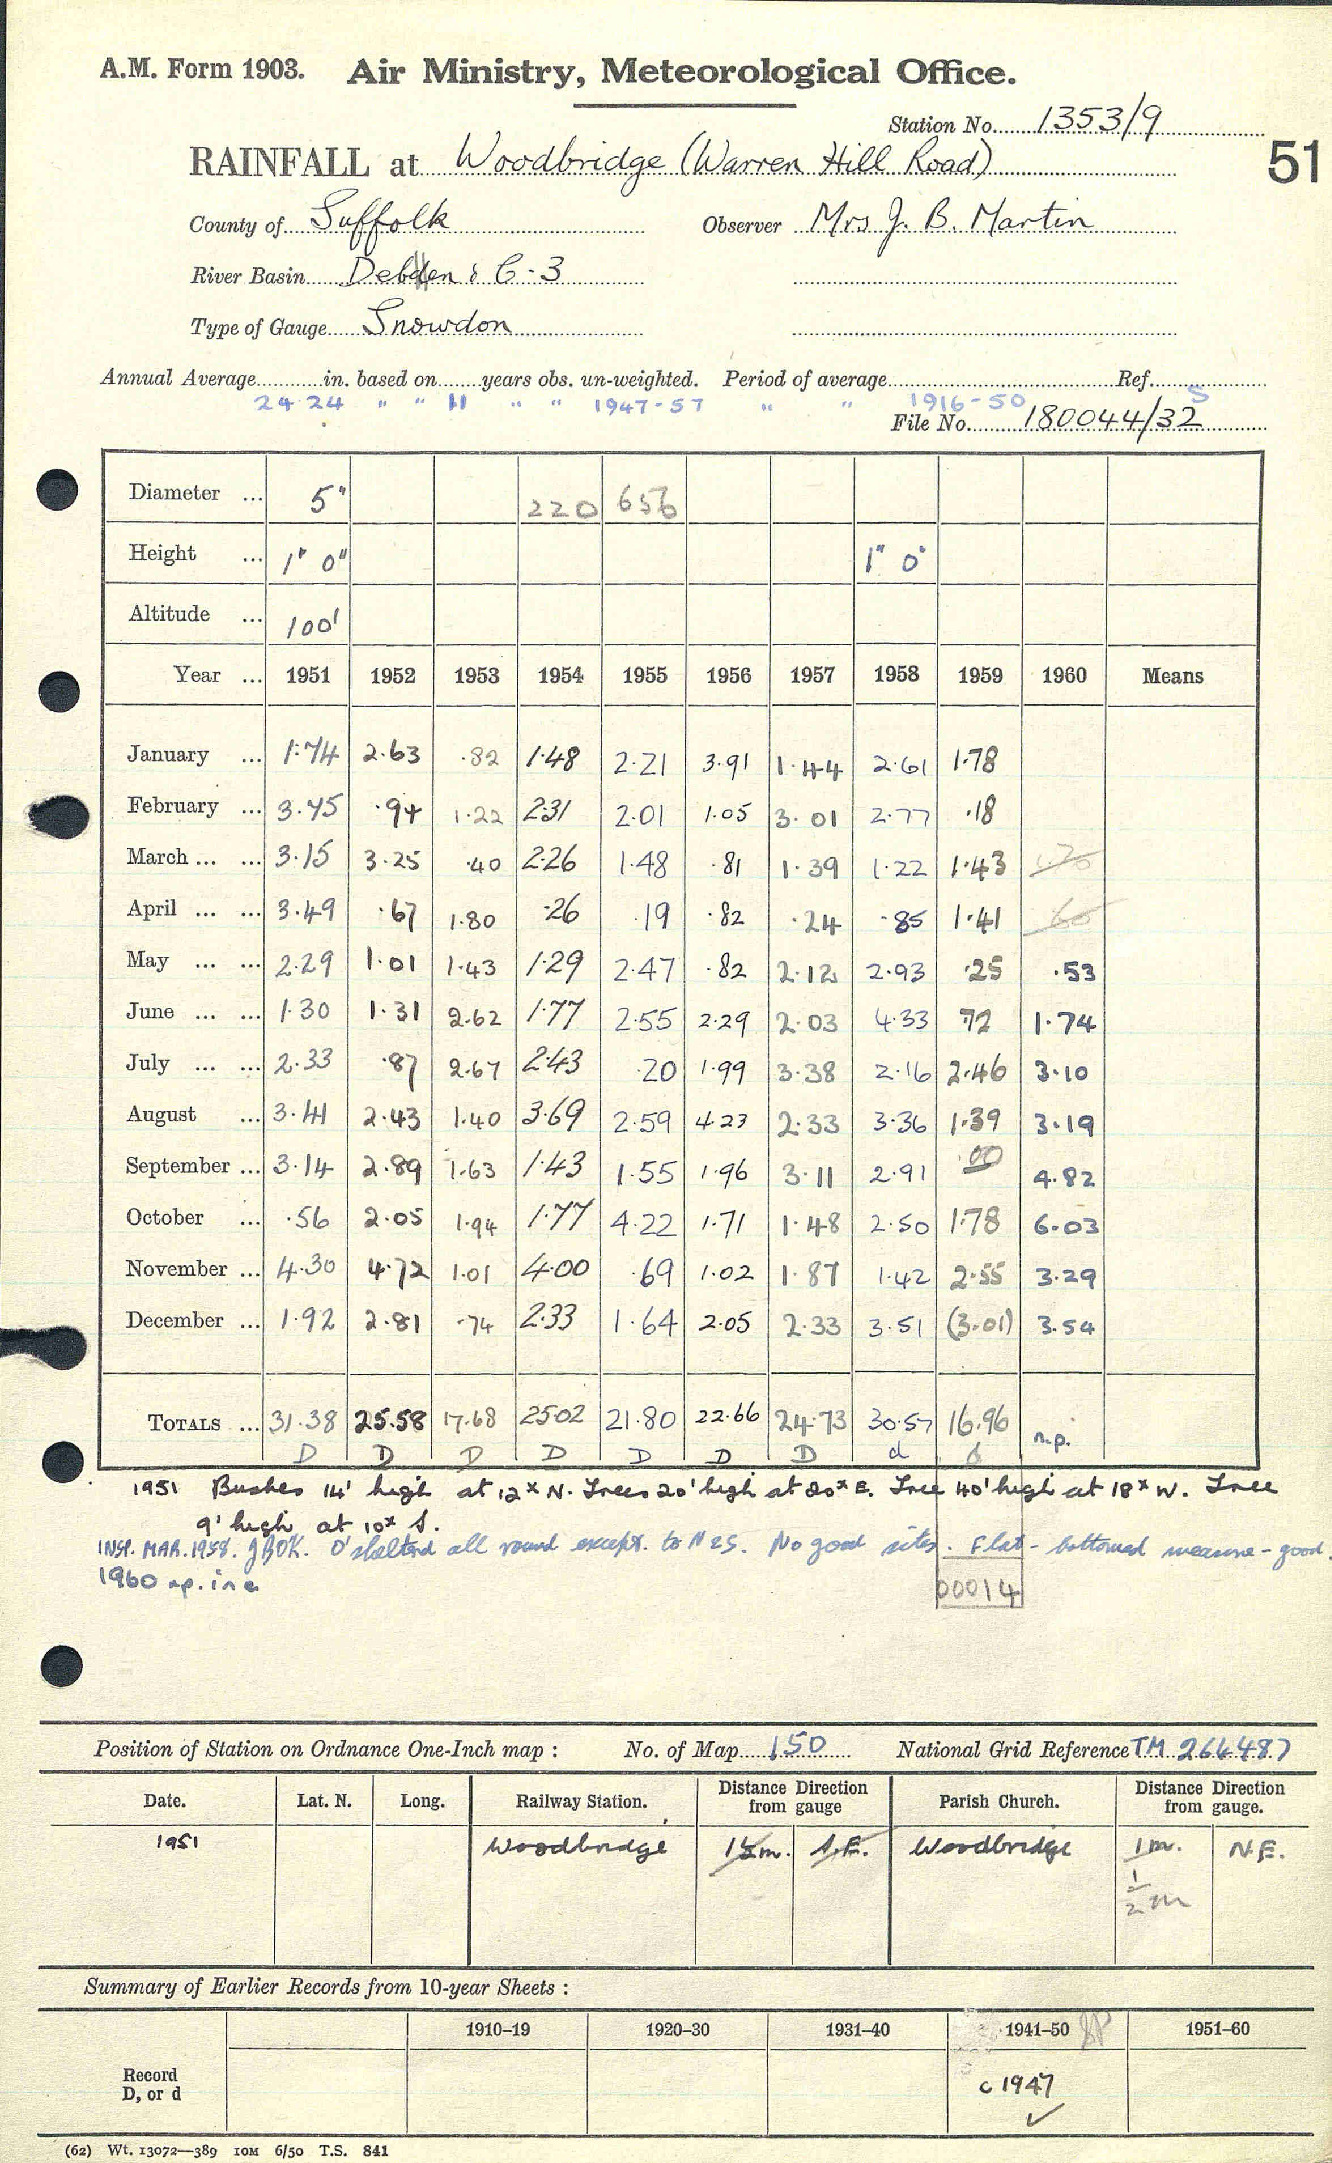 A.M. Form 1903. Air Ministry, Meteorological Office.
Station No. 1353/9
RAINFALL at Woodbridge (Warren Hill Road)
51
County of Suffolk Observer Mrs J. B. Martin
River Basin Debden & C-3
Type of Gauge Snowdon
Annual Average in. based on years obs. un-weighted. Period of average Ref.
24.24 " " 11 " " 1947-57 " " 1916-50 S
File No. 180044/32
Diameter ... 5" 220 656
Height ... 1' 0" 1" 0'
Altitude ... 100'
Year ... 1951 1952 1953 1954 1955 1956 1957 1958 1959 1960 Means
January ... 1.74 2.63 .82 1.48 2.21 3.91 1.44 2.61 1.78
February ... 3.75 .94 1.22 2.31 2.01 1.05 3.01 2.77 .18
March ... ... 3.15 3.25 .40 2.26 1.48 .81 1.39 1.22 1.43
April ... ... 3.49 .67 1.80 .26 .19 .82 .24 .85 1.41
May ... ... 2.29 1.01 1.43 1.29 2.47 .82 2.12 2.93 .25 .53
June ... ... 1.30 1.31 2.62 1.77 2.55 2.29 2.03 4.33 .72 1.74
July ... ... 2.33 .87 2.67 2.43 .20 1.99 3.38 2.16 2.46 3.10
August ... 3.41 2.43 1.40 3.69 2.59 4.23 2.33 3.36 1.39 3.19
September ... 3.14 2.89 1.63 1.43 1.55 1.96 3.11 2.91 .00 4.82
October ... .56 2.05 1.94 1.77 4.22 1.71 1.48 2.50 1.78 6.03
November ... 4.30 4.72 1.01 4.00 .69 1.02 1.87 1.42 2.55 3.29
December ... 1.92 2.81 .74 2.33 1.64 2.05 2.33 3.51 (3.01) 3.54
TOTALS ... 31.38 25.58 17.68 25.02 21.80 22.66 24.73 30.57 16.96 n.p.
D D D D D D D d d
1951 Bushes 14' high at 12x N. Trees 20' high at 20x E. Tree 40' high at 18x W. Tree
9' high at 10x S.
INSP. MAR. 1958. O'sheltered all round except. to N & S. No good sites. Flat-bottomed measure - good.
1960 np. in e
00014
Position of Station on Ordnance One-Inch map : No. of Map 150 National Grid Reference TM 266487
Date. Lat. N. Long. Railway Station. Distance Direction from gauge Parish Church. Distance Direction from gauge.
1951 Woodbridge 1½m. S.E. Woodbridge 1m. N.E.
½m
Summary of Earlier Records from 10-year Sheets :
1910–19 1920–30 1931–40 1941–50 1951–60
Record
D, or d
c 1947
(62) Wt. 13072—389 10M 6/50 T.S. 841